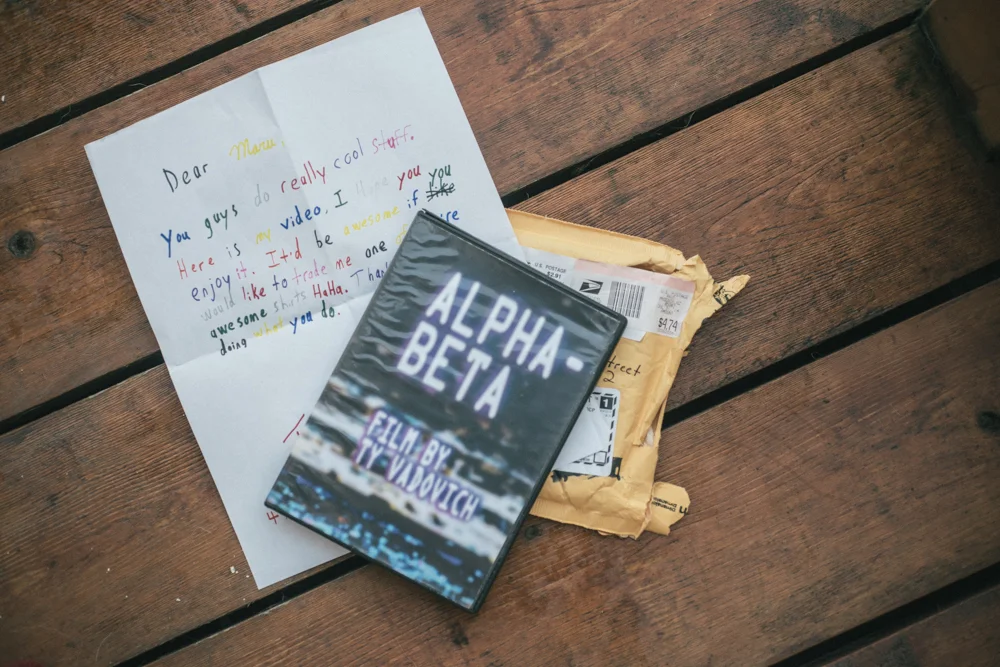 Dear
You guys do really cool stuff.
Here is my video. I you you
enjoy it. It'd be awesome if like
Would like to trade me one
awesome shits HaHa.
doing what you do.
ALPHA-
BETA
FILM BY
TY VADOVICH
U.S. POSTAGE
$2.81
$4.74
1